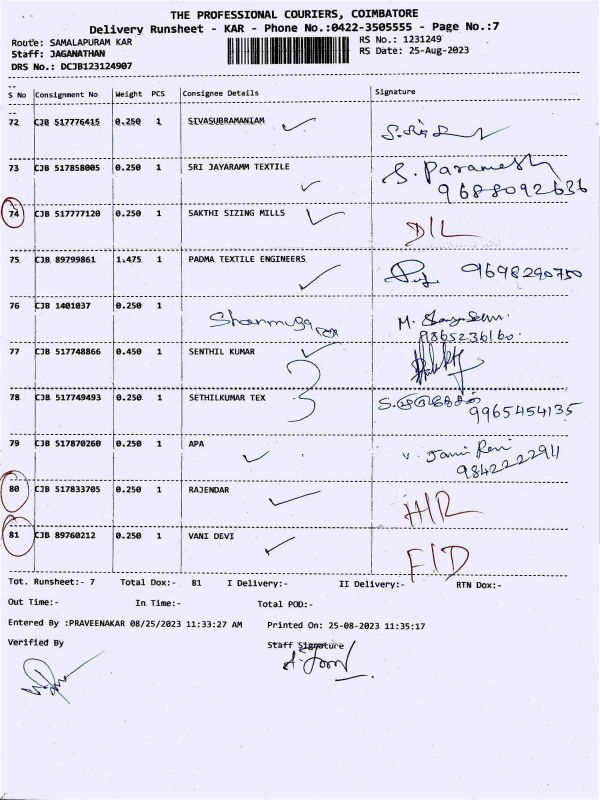 THE PROFESSIONAL COURIERS, COIMBATORE
Delivery Runsheet - KAR - Phone No.:0422-3505555 - Page No.:7
Route: SAMALAPURAM KAR
RS No.: 1231249
Staff: JAGANATHAN
RS Date: 25-Aug-2023
DRS No.: DCJB123124907
S No Consignment No Weight PCS Consignee Details Signature
72 CJB 517776415 0.250 1 SIVASUBRAMANIAM
73 CJB 517858005 0.250 1 SRI JAYARAMM TEXTILE S. Paramesh
9688092636
74 CJB 517777120 0.250 1 SAKTHI SIZING MILLS D/L
75 CJB 89799861 1.475 1 PADMA TEXTILE ENGINEERS 9698290750
76 CJB 1401037 0.250 1 Shanmuga M.
9865236160.
77 CJB 517748866 0.450 1 SENTHIL KUMAR
78 CJB 517749493 0.250 1 SETHILKUMAR TEX 3
9965454135
79 CJB 517870260 0.250 1 APA V.
9842222911
80 CJB 517833705 0.250 1 RAJENDAR H/R
81 CJB 89760212 0.250 1 VANI DEVI F/D
Tot. Runsheet:- 7 Total Dox:- 81 I Delivery:- II Delivery:- RTN Dox:-
Out Time:- In Time:- Total POD:-
Entered By :PRAVEENAKAR 08/25/2023 11:33:27 AM Printed On: 25-08-2023 11:35:17
Verified By Staff Signature